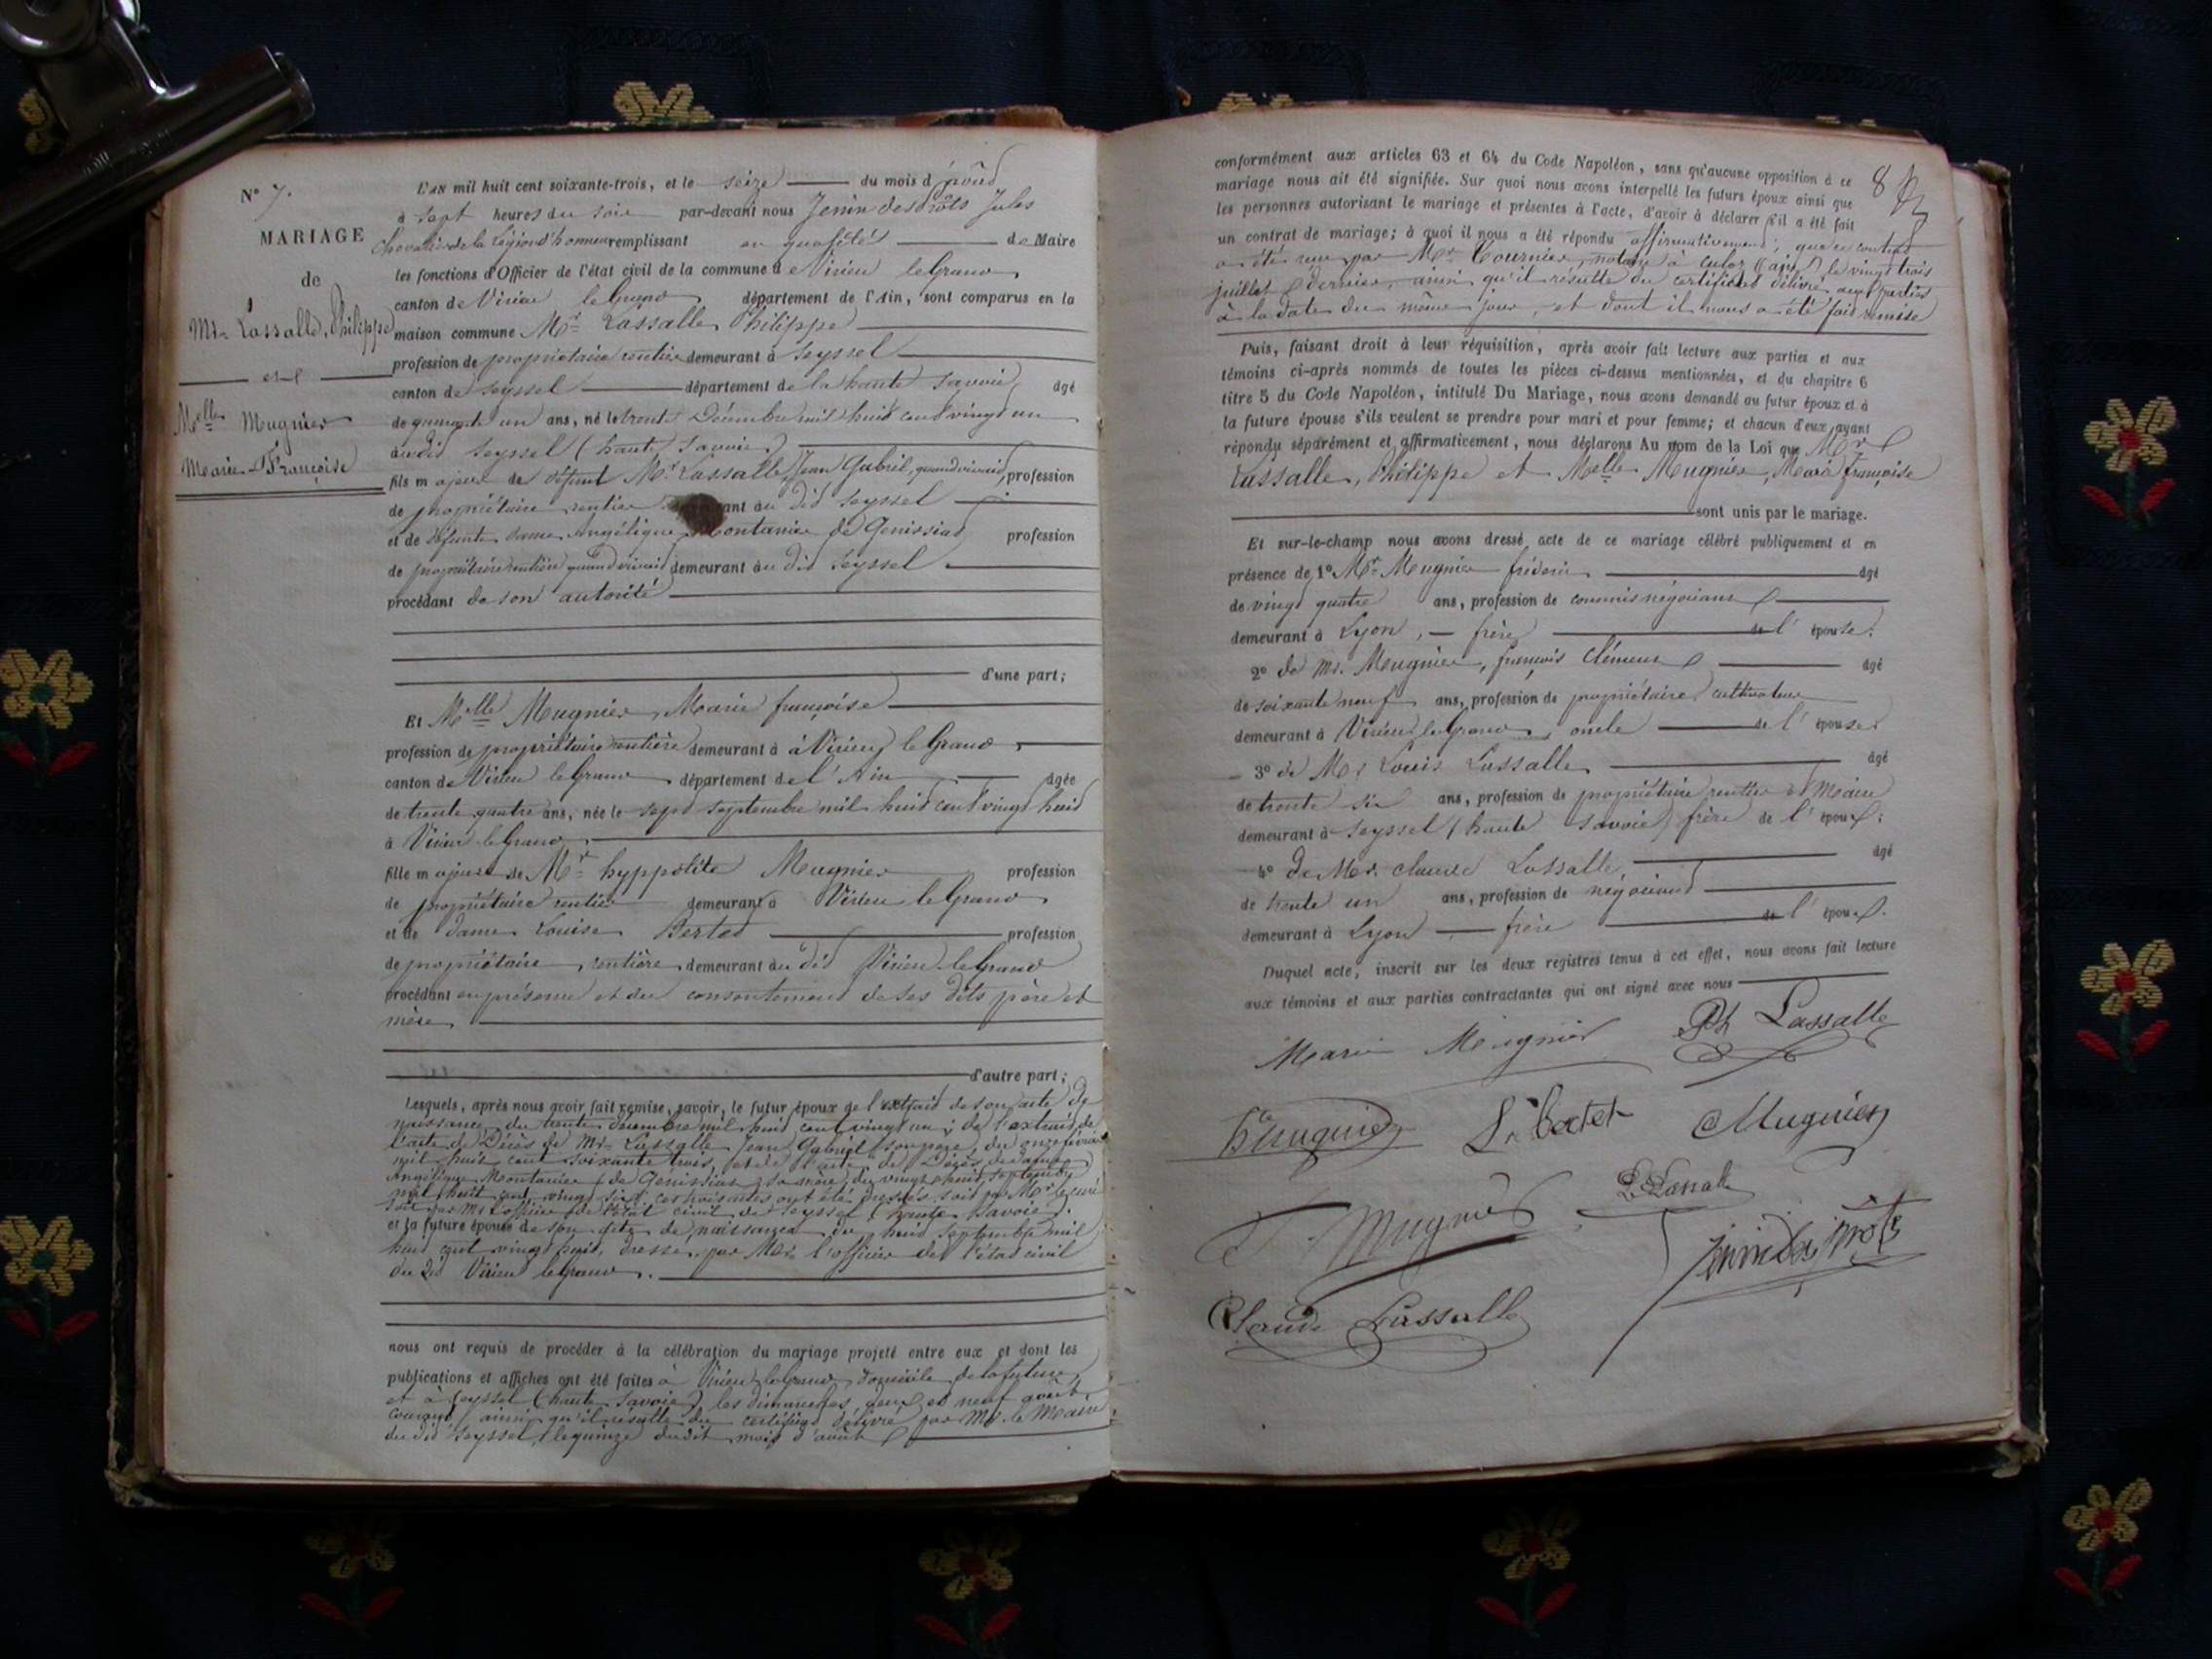 N° 7.
MARIAGE
de
Mr. Lassalle, Philippe
et
Melle Mugnier
Marie Françoise
L'an mil huit cent soixante-trois, et le seize du mois d'août
à sept heures du soir par-devant nous Jenin des Prôts Jules
Chevalier de la Légion d'honneur remplissant en qualité de Maire
les fonctions d'Officier de l'état civil de la commune de Virieu le Grand
canton de Virieu le Grand département de l'Ain, sont comparus en la
maison commune Mr Lassalle Philippe
profession de propriétaire rentier demeurant à Seyssel
canton de Seyssel département de la haute Savoie, âgé
de quarante un ans, né le trente Décembre mil huit cent vingt un
au dit Seyssel (haute Savoie)
fils majeur de défunt Mr. Lassalle Jean Gabriel, quand vivait, profession
de propriétaire rentier demeurant au dit Seyssel
et de défunte dame Angélique Montanier de Genissiat profession
de propriétaire rentière quand vivait demeurant au dit Seyssel
procédant de son autorité
d'une part;
Et Melle Mugnier, Marie françoise
profession de propriétaire rentière demeurant à à Virieu le Grand
canton de Virieu le Grand département de l'Ain âgée
de trente quatre ans, née le sept septembre mil huit cent vingt huit
à Virieu le Grand
fille majeure de Mr hyppolite Mugnier profession
de propriétaire rentier demeurant à Virieu le Grand
et de dame Louise Bertet profession
de propriétaire rentière demeurant au dit Virieu le Grand
procédant en présence et du consentement de ses dits père et
mère
d'autre part;
Lesquels, après nous avoir fait remise, savoir, le futur époux de l'extrait de son acte de
naissance du trente décembre mil huit cent vingt un; de l'extrait de
l'acte de Décès de Mr. Lassalle Jean Gabriel son père, du onze février
mil huit cent soixante trois, et de l'acte de Décès de dame
Angélique Montanier de Genissiat sa mère, du vingt huit septembre
mil huit cent vingt six; ces trois actes ont été dressés soit par Mr le curé
soit par Mr l'officier de l'état civil de Seyssel (haute Savoie).
et la future épouse de son acte de naissance du huit septembre mil
huit cent vingt huit, dressé par Mr. l'officier de l'état civil
du dit Virieu le Grand.
nous ont requis de procéder à la célébration du mariage projeté entre eux et dont les
publications et affiches ont été faites à Virieu le Grand, domicile de la future,
et à Seyssel (haute Savoie) les dimanches, deux et neuf août
courant, ainsi qu'il résulte du certificat délivré par Mr. le Maire
du dit Seyssel, le quinze dudit mois d'août
8
conformément aux articles 63 et 64 du Code Napoléon, sans qu'aucune opposition à ce
mariage nous ait été signifiée. Sur quoi nous avons interpellé les futurs époux ainsi que
les personnes autorisant le mariage et présentes à l'acte, d'avoir à déclarer s'il a été fait
un contrat de mariage; à quoi il nous a été répondu affirmativement; que ce contrat
a été reçu par Mr Tournier, notaire à Culoz (ain) le vingt trois
juillet dernier, ainsi qu'il résulte du certificat délivré aux parties
à la date du même jour, et dont il nous a été fait remise
Puis, faisant droit à leur réquisition, après avoir fait lecture aux parties et aux
témoins ci-après nommés de toutes les pièces ci-dessus mentionnées, et du chapitre 6
titre 5 du Code Napoléon, intitulé Du Mariage, nous avons demandé au futur époux et à
la future épouse s'ils veulent se prendre pour mari et pour femme; et chacun d'eux ayant
répondu séparément et affirmativement, nous déclarons Au nom de la Loi que Mr
Lassalle, Philippe et Melle Mugnier, Marie françoise
sont unis par le mariage.
Et sur-le-champ nous avons dressé acte de ce mariage célébré publiquement et en
présence de, 1° Mr Mugnier frédéric âgé
de vingt quatre ans, profession de commis négociant
demeurant à Lyon, frère de l'épouse.
2° de Mr. Mugnier, françois Clément âgé
de soixante neuf ans, profession de propriétaire cultivateur
demeurant à Virieu le Grand, oncle de l'épouse.
3° de Mr Louis Lassalle âgé
de trente six ans, profession de propriétaire rentier et Maire
demeurant à Seyssel (haute Savoie) frère de l'époux;
4° de Mr. Claude Lassalle âgé
de trente un ans, profession de négociant
demeurant à Lyon frère de l'époux.
Duquel acte, inscrit sur les deux registres tenus à cet effet, nous avons fait lecture
aux témoins et aux parties contractantes qui ont signé avec nous
Marie Mugnier Ph Lassalle
hte Mugnier L. Bertet Mugnier
F. Mugnier L. Lassalle
Jenin des Prots
Claude Lassalle